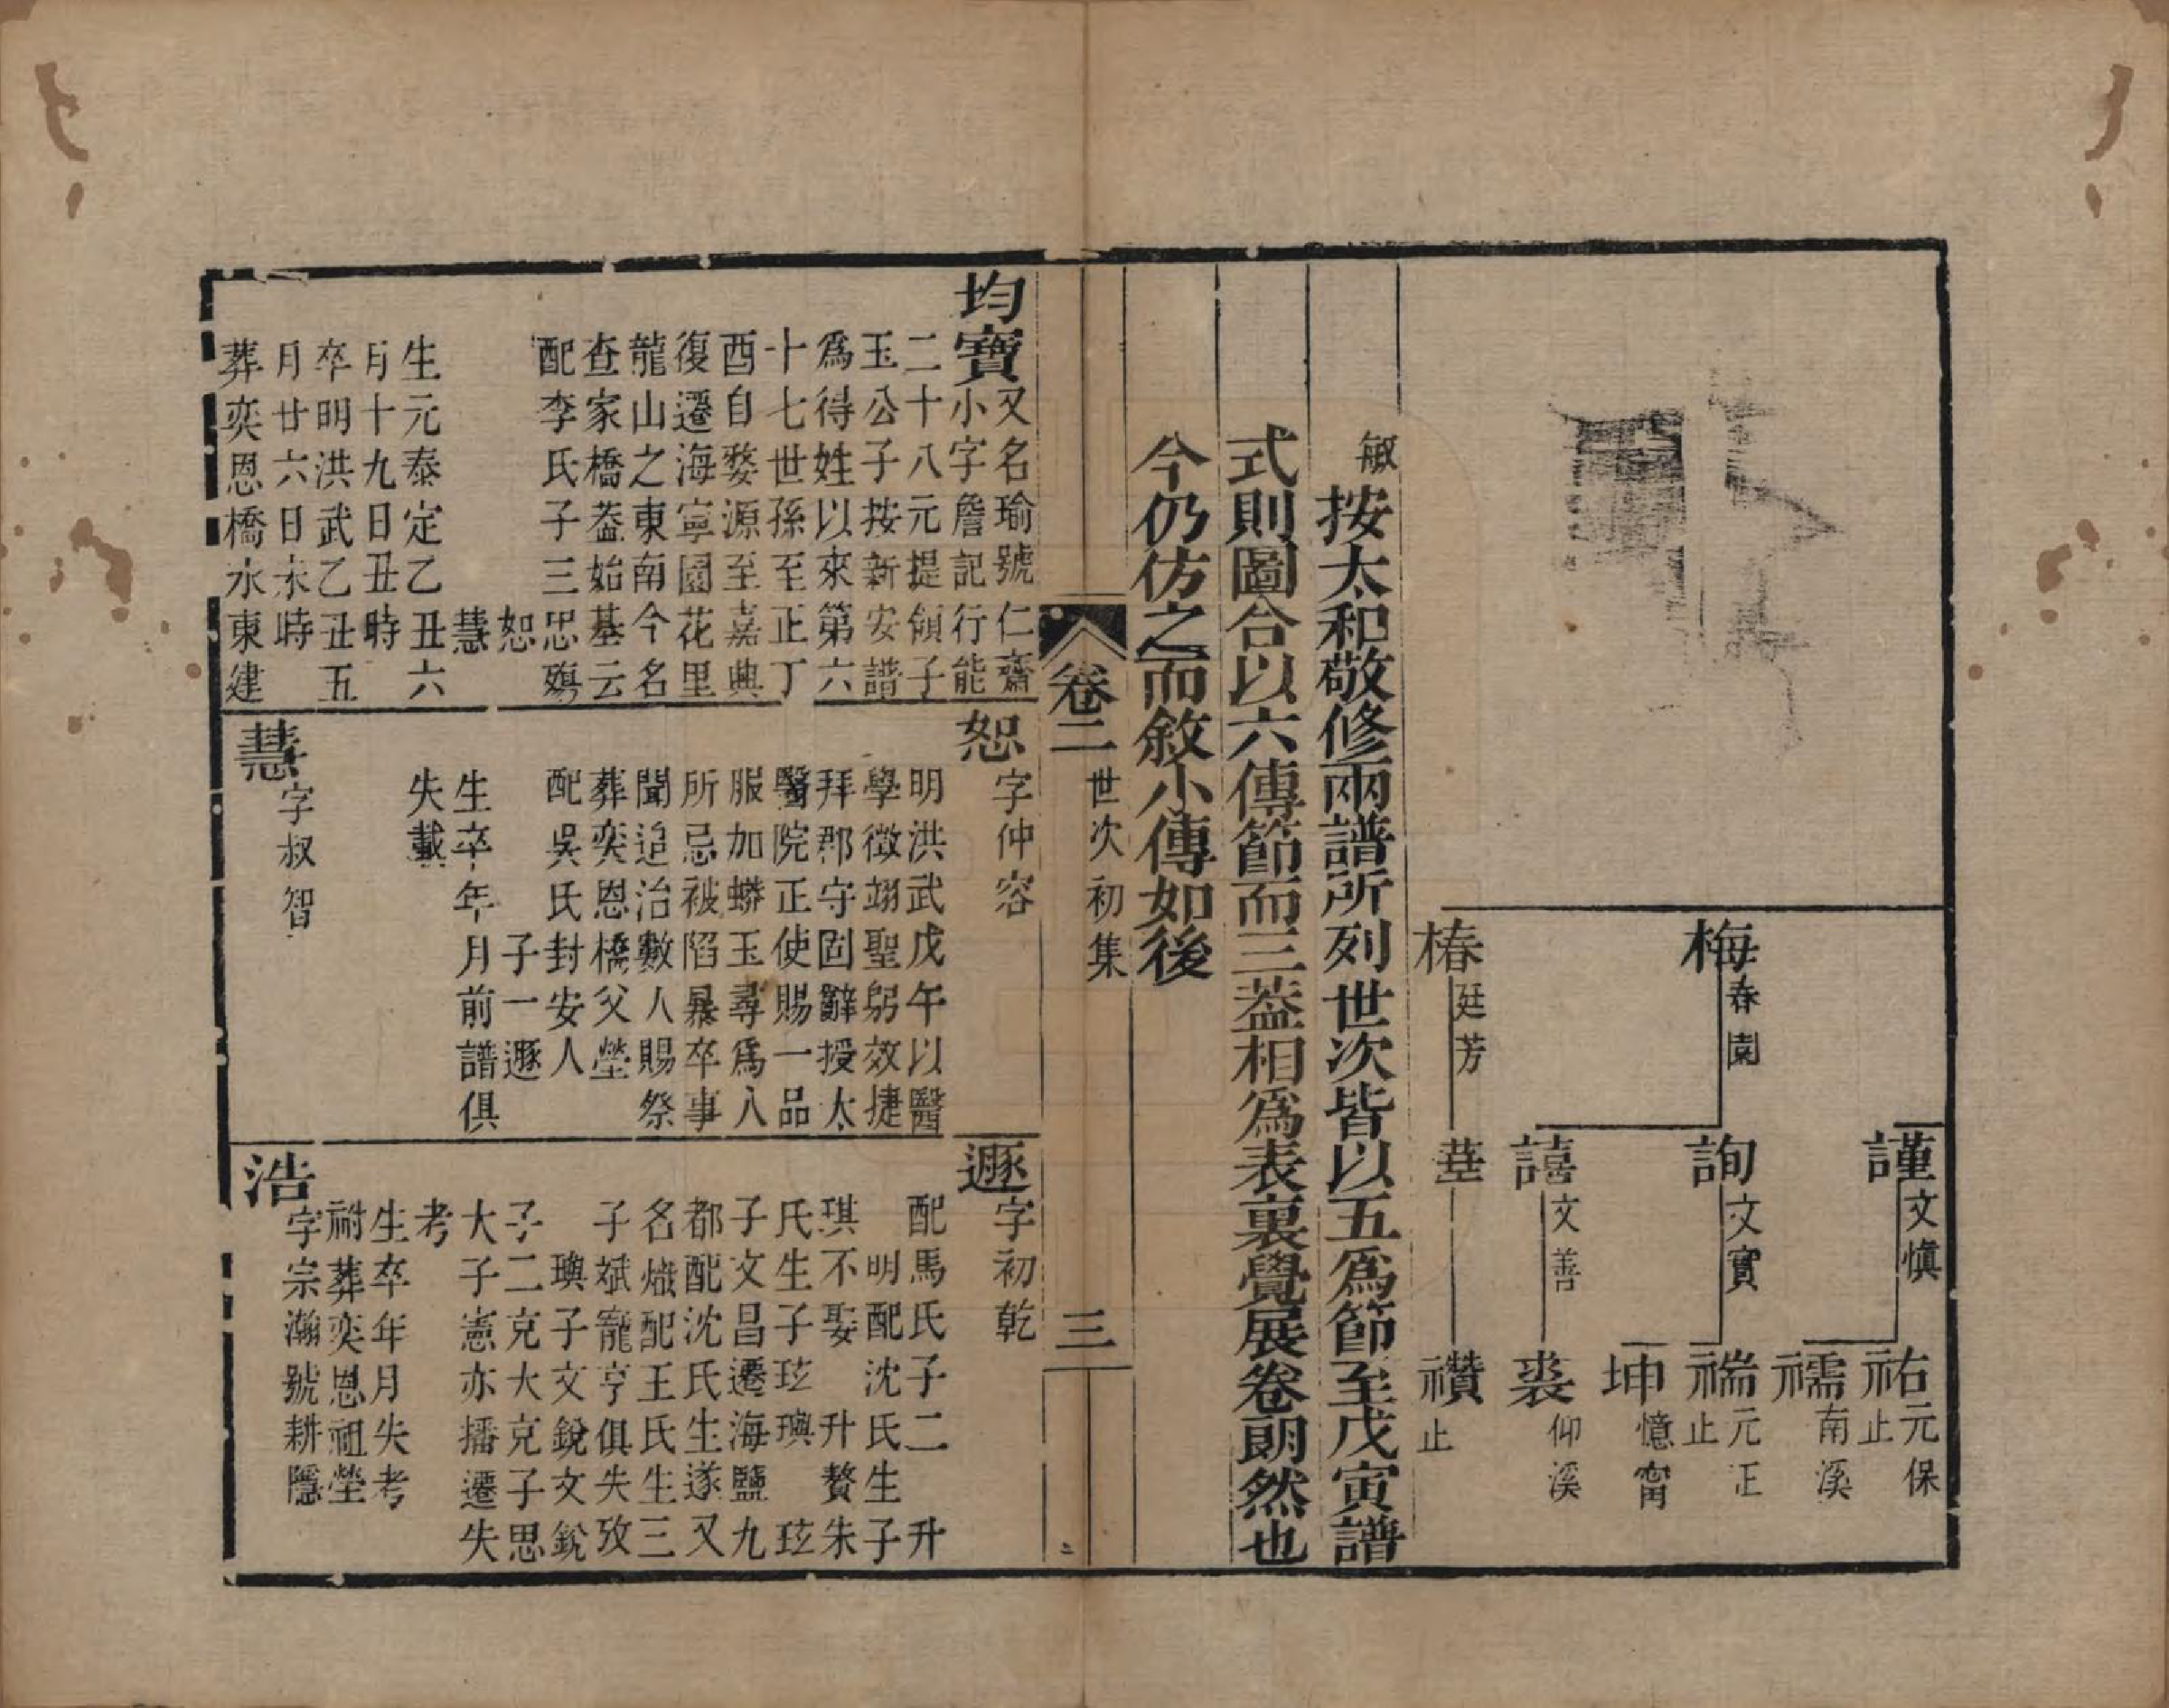 梅春園
椿廷芳
謹文愼
詢文實
譆文善
莖
祐元保止
襦南溪
褍元正止
坤憶甯
裘仰溪
禶止
敏按太和敬修兩譜所列世次皆以五爲節至戊寅譜
式則圖合以六傳節而三葢相爲表裏覺展卷朗然也
今仍仿之而敘小傳如後
卷二 世次初集 三
均寶又名瑜號仁齋
小字詹記行能
二十八元提領子
玉公子按新安譜
爲得姓以來第六
十七世孫至正丁
酉自婺源至嘉興
復遷海寧園花里
龍山之東南今名
查家橋葢始基云
配李氏子三忠殤
恕
慧
生元泰定乙丑六
月十九日丑時
卒明洪武乙丑五
月廿六日未時
葬奕恩橋水東建
恕字仲容
明洪武戊午以醫
學徵翊聖躬效捷
拜郡守固辭授太
醫院正使賜一品
服加蟒玉尋爲人
所忌被陷暴卒事
聞追治數人賜祭
葬奕恩橋父塋
配吳氏封安人
子一遯
生卒年月前譜俱
失載
慧字叔智
遯字初乾
配馬氏子二 升
明配沈氏生子
琪不娶 升贅朱
氏生子玹璵 玹
子文昌遷海鹽九
都配沈氏生遂又
名熾配王氏生三
子斌寵亨俱失攷
璵子文銳文銳
子二克大克子思
大子憲亦播遷失
考
生卒年月失考
祔葬奕恩祖塋
浩字宗瀚號耕隱